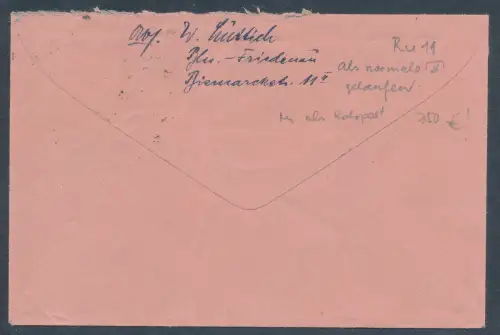 Abs. W. Lüttich
Bln.-Friedenau
Bismarckstr. 11 II
Ru 19
Als normale
gelaufen
als Rohrpost 750 €!